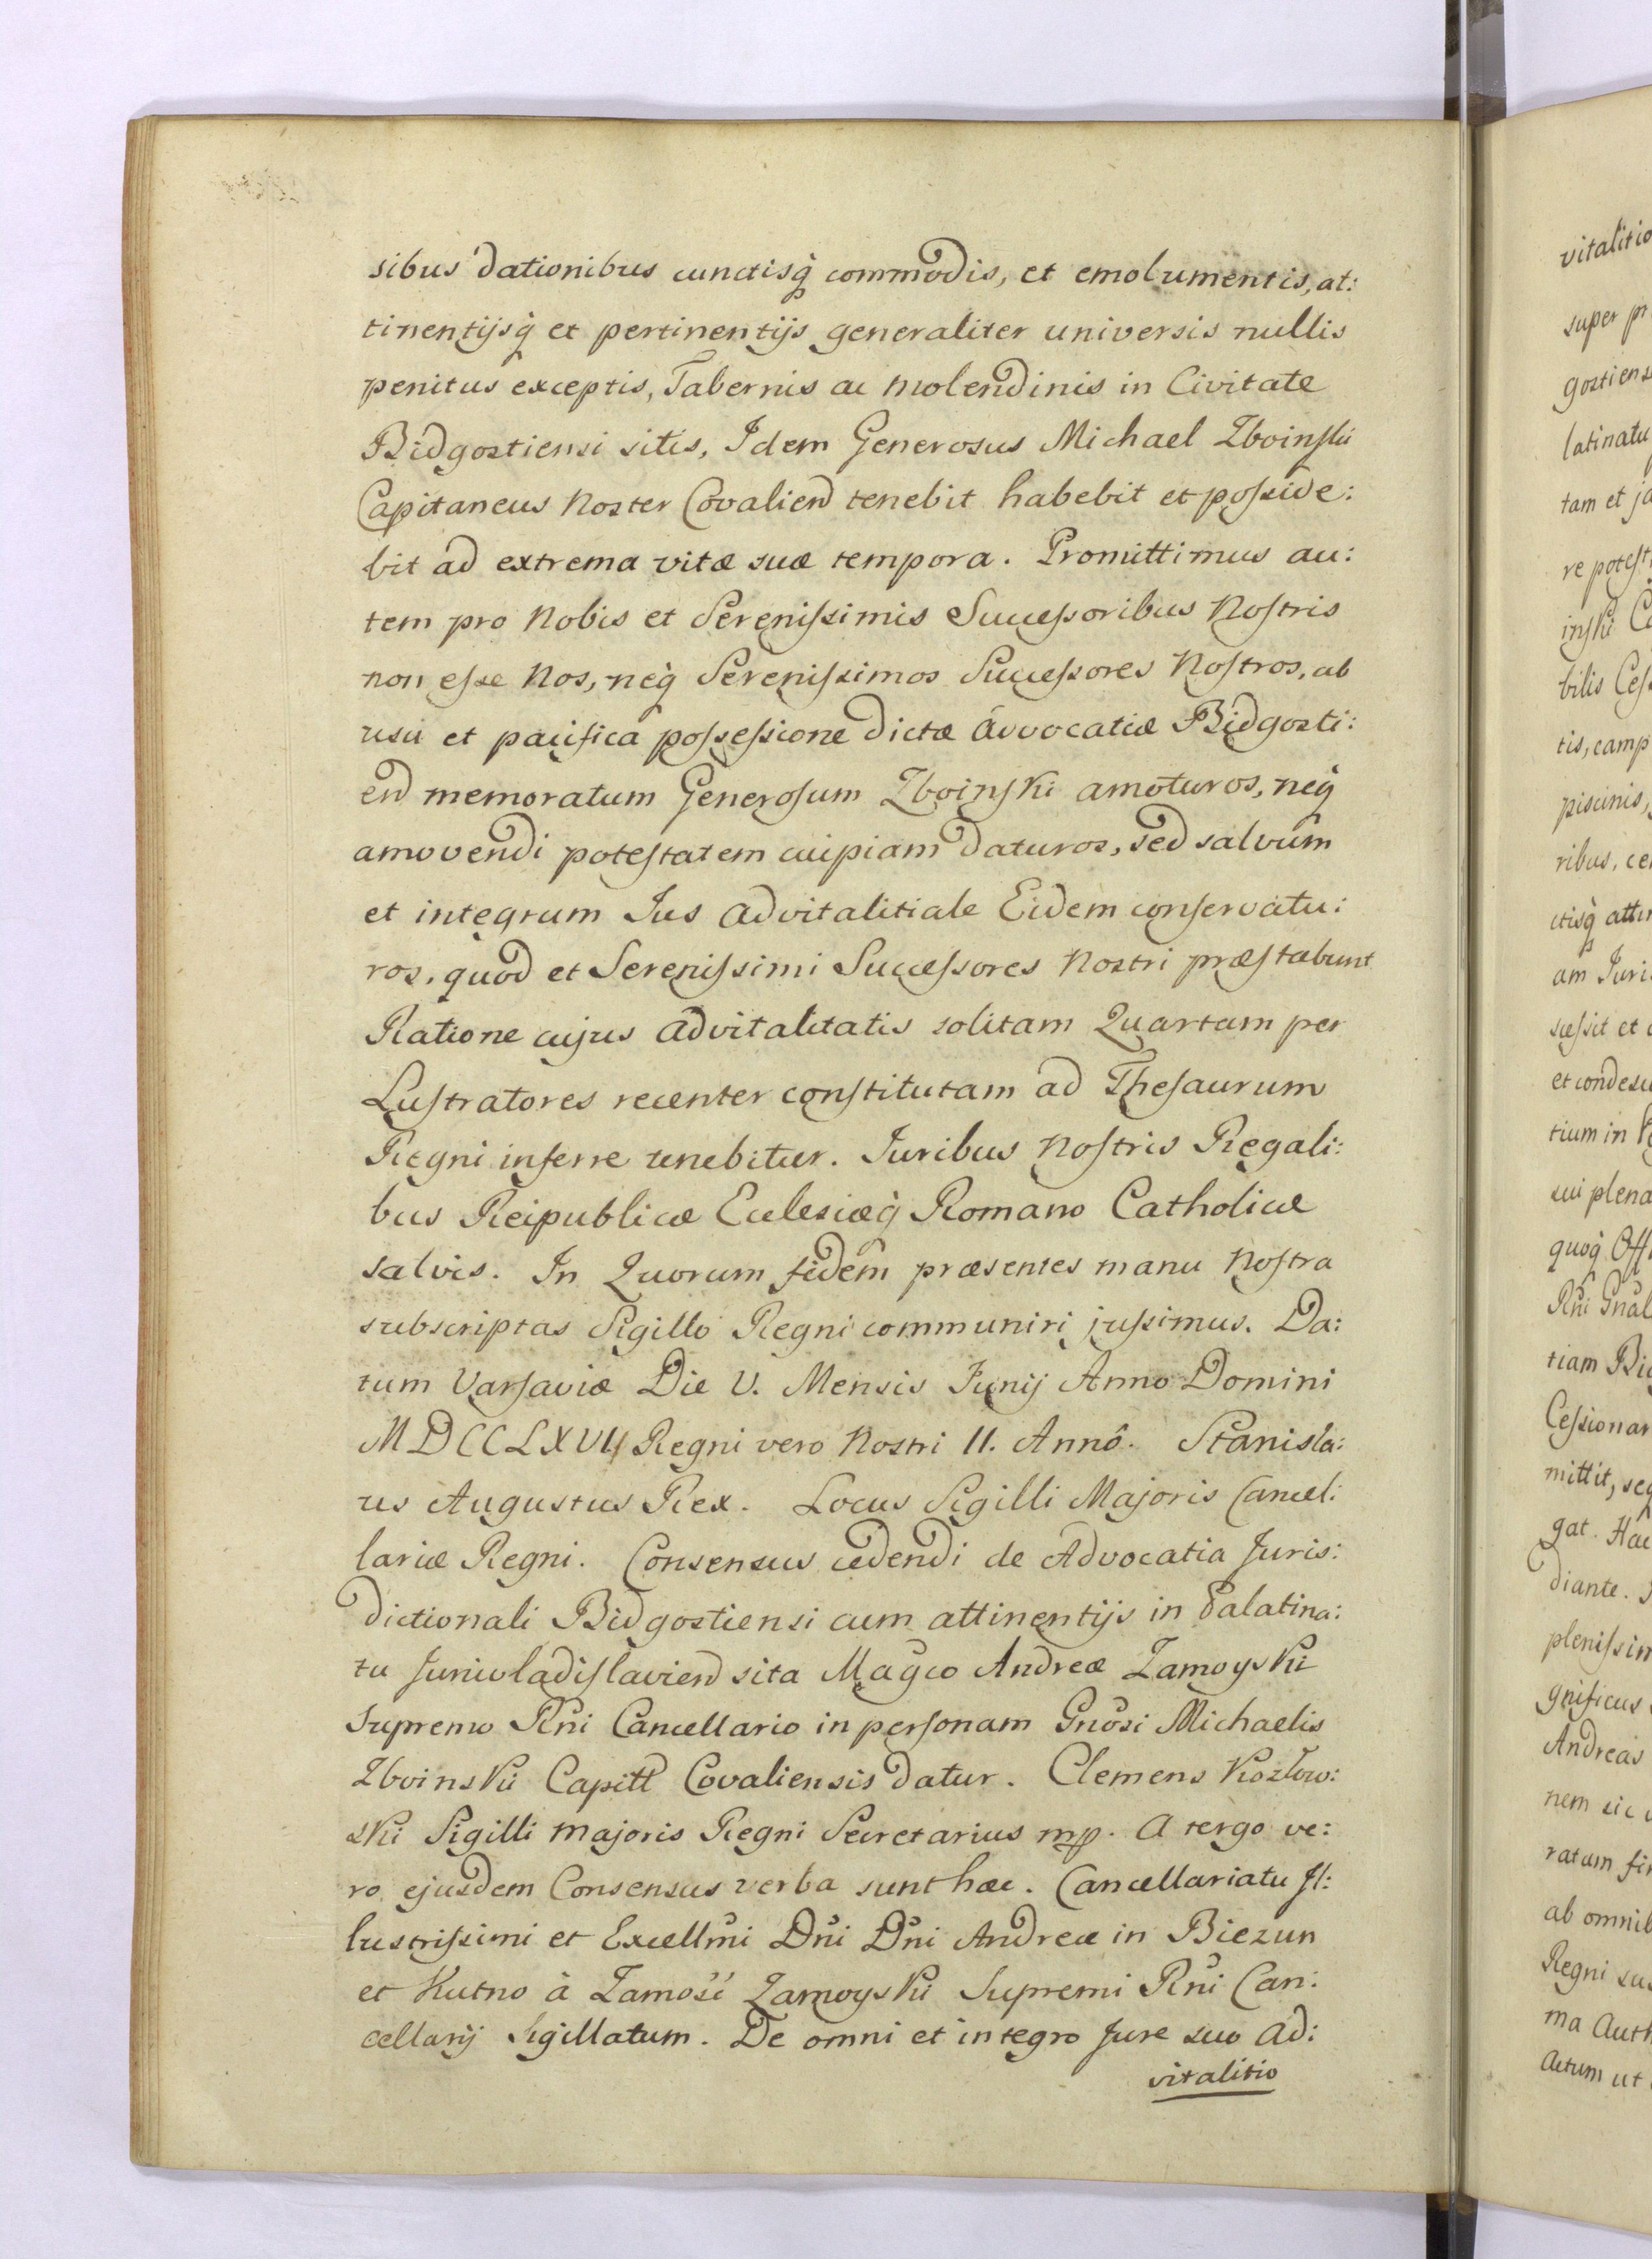 sibus dationibus cunctisq̀ commodis, et emolumentis, at:
tinentijsq̀ et pertinentijs generaliter universis nullis
penitus exceptis, Tabernis ac molendinis in Civitate
Bidgostiensi sitis, Idem Generosus Michael Zboinski
Capitaneus Noster Covalien tenebit habebit et posside:
bit ad extrema vitæ suæ tempora. Promittimus au:
tem pro Nobis et Serenissimis Successoribus Nostris
non esse Nos, neq̀ Serenissimos Successores Nostros, ab
usu et pacifica possessione dictæ advocatiæ Bidgosti:
en memoratum Generosum Zboinski amoturos, neq̀
amovendi potestatem cuipiam daturos, sed salvum
et integrum Jus advitalitiale Eidem conservatu:
ros, quod et Serenissimi Successores Nostri præstabunt
Ratione cujus advitalitatis solitam Quartam per
Lustratores recenter constitutam ad Thesaurum
Regni inferre tenebitur. Juribus Nostris Regali:
bus Reipublicæ Eclesiæq̀ Romano Catholicæ
salvis. In Quorum fidem præsentes manu Nostra
subscriptas Sigillo Regni communiri jussimus. Da:
tum Varsaviæ Die V. Mensis Junij Anno Domini
MDCCLXVII Regni vero Nostri II. Annô. Stanisla:
us Augustus Rex. Locus Sigilli Majoris Cancel:
lariæ Regni. Consensus cedendi de Advocatia Juris:
dictionali Bidgostiensi cum attinentijs in Palatina:
tu Juniwladislavien sita Magco Andreæ Zamoyski
Supremo Rñi Cancellario in personam Gnõsi Michaelis
Zboinskii Capitt Covaliensis datur. Clemens Kozłow:
ski Sigilli Majoris Regni Secretarius mp. A tergo ve:
ro ejusdem Consensus verba sunt hæc. Cancellariatu Il:
lustrissimi et Excellm̃i Dñi Dñi Andreæ in Biezun
et Kutno à Zamość Zamoyski Supremi Rñi Can:
cellarij Sigillatum. De omni et integro Jure suo Ad:
vitalitio
vitalitio
super
latinatu
tam et
tis, camp
piscinis,
ribus,
am Juri
et condesc
tium in
cui plena
quoq̀ Off
tiam
Cessionar
mittit,
gat.
diante.
plenissim
gnificus
Andreas
nem sic
ratum
ab omnib
Regni
ma Auth
Actum ut